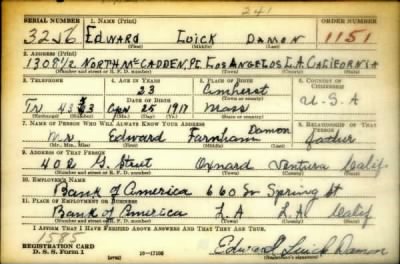 241
SERIAL NUMBER 1. NAME (Print) ORDER NUMBER
3256 EDWARD LUICK DAMON 1151
(First) (Middle) (Last)
2. ADDRESS (Print)
1308½ NORTH McCADDEN, PL LOS ANGELOS L.A. CALIFORNIA
(Number and street or R. F. D. number) (Town) (County) (State)
3. TELEPHONE 4. AGE IN YEARS 5. PLACE OF BIRTH 6. COUNTRY OF CITIZENSHIP
23 Amherst
DATE OF BIRTH (Town or county)
Apr 25 1917 Mass U.S.A
(Exchange) (Number) (Mo.) (Day) (Yr.) (State or country)
7. NAME OF PERSON WHO WILL ALWAYS KNOW YOUR ADDRESS 8. RELATIONSHIP OF THAT PERSON
Mr Edward Farnham Damon father
(Mr., Mrs., Miss) (First) (Middle) (Last)
9. ADDRESS OF THAT PERSON
402 G. Street Oxnard Ventura Calif
(Number and street or R. F. D. number) (Town) (County) (State)
10. EMPLOYER'S NAME
Bank of America 660 So Spring St
11. PLACE OF EMPLOYMENT OR BUSINESS
Bank of America LA L.A. Calif
(Number and street or R. F. D. number) (Town) (County) (State)
I AFFIRM THAT I HAVE VERIFIED ABOVE ANSWERS AND THAT THEY ARE TRUE.
1585
REGISTRATION CARD
D. S. S. Form 1 Edward Luick Damon
(Registrant's signature)